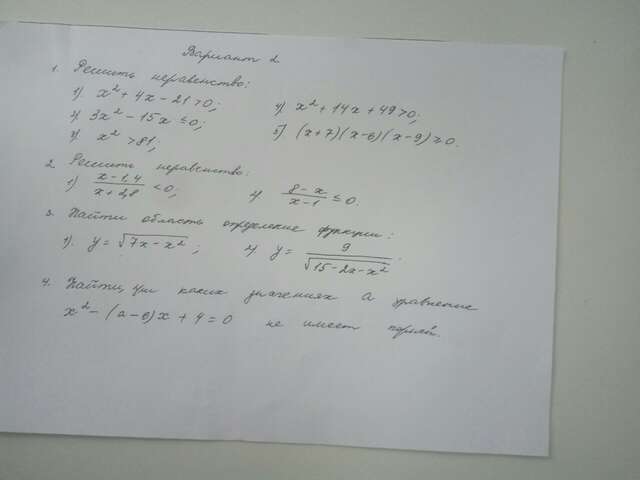 Вариант 2
1. Решить неравенство:
1) x² + 4x - 21 > 0; 4) x² + 14x + 49 > 0;
2) 3x² - 15x ≤ 0; 5) (x+7)(x-6)(x-9) ≥ 0.
3) x² > 81;
2. Решить неравенство:
1) (x-1,4)/(x+2,8) < 0; 2) (8-x)/(x-1) ≤ 0.
3. Найти область определение функции:
1). y = √(7x - x²); 2) y = 9/√(15-2x-x²).
4. Найти, при каких значениях a уравнение
x² - (a-6)x + 4 = 0 не имеет корней.